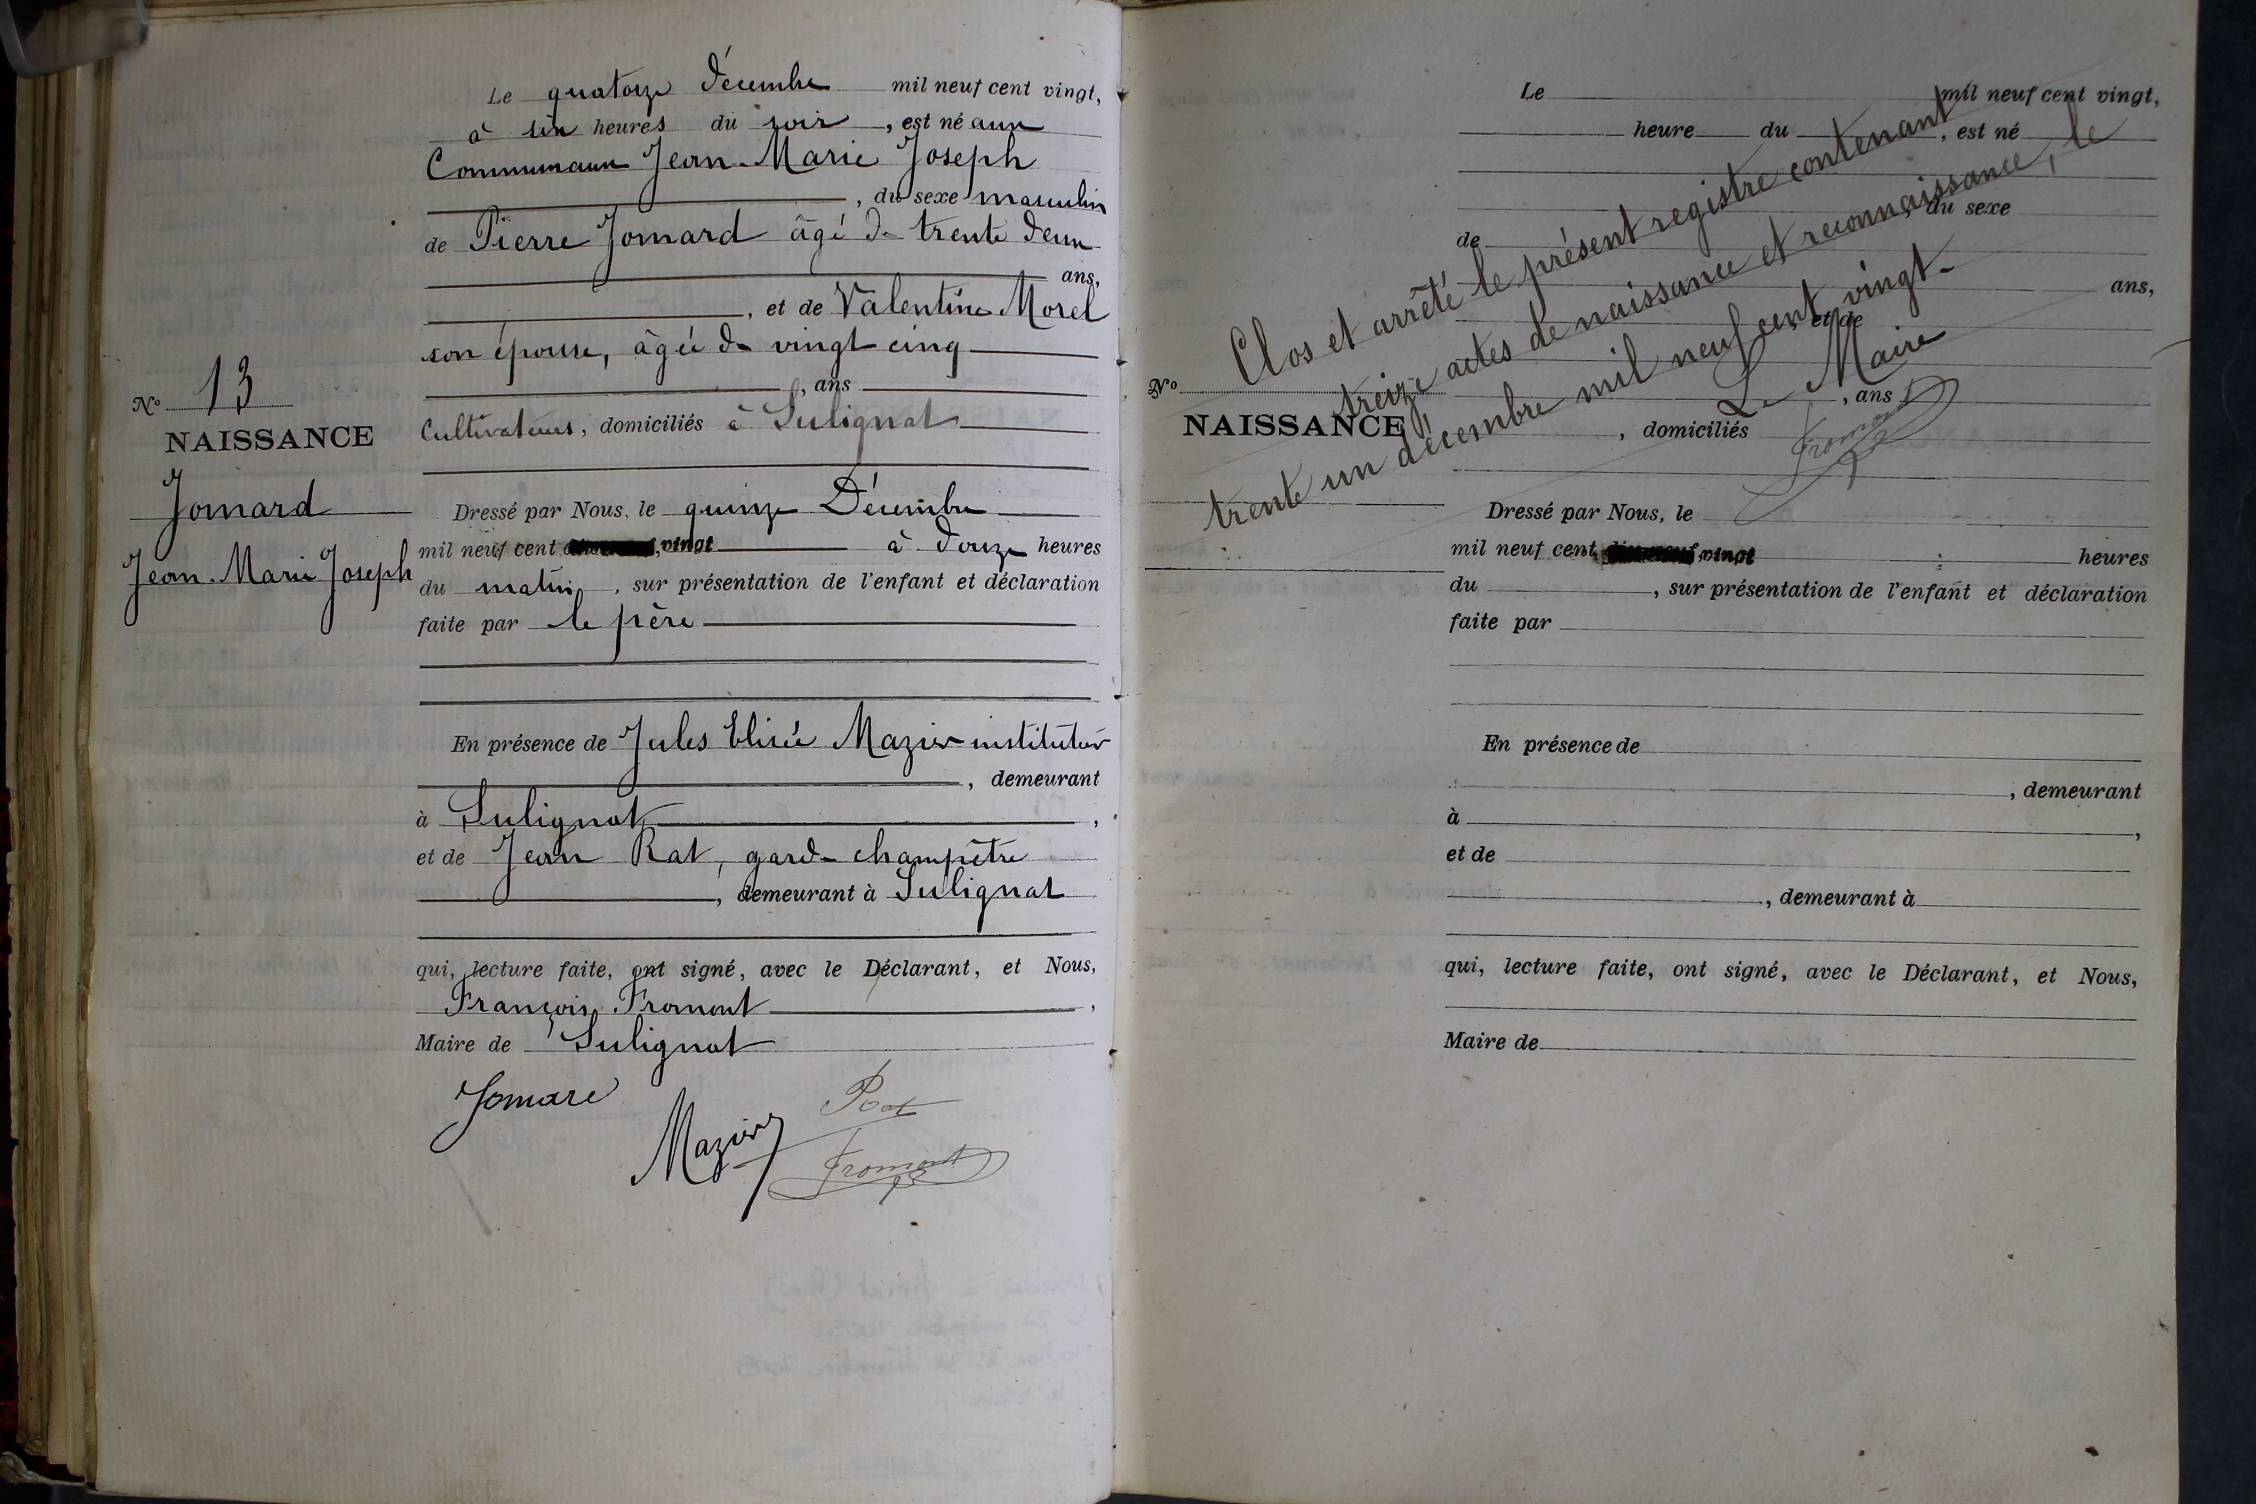 Le quatorze Décembre mil neuf cent vingt,
à six heures du soir, est né aux
Communaux Jean-Marie Joseph
, du sexe masculin
de Pierre Jomard âgé de trente deux
ans,
, et de Valentine Morel
son épouse, âgée de vingt cinq
, ans
Cultivateurs, domiciliés à Sulignat
N° 13
NAISSANCE
Jomard
Jean-Marie Joseph
Dressé par Nous, le quinze Décembre
mil neuf cent vingt à douze heures
du matin, sur présentation de l'enfant et déclaration
faite par le père
En présence de Jules Elisée Mazier instituteur
, demeurant
à Sulignat,
et de Jean Rat, garde champêtre
, demeurant à Sulignat
qui, lecture faite, ont signé, avec le Déclarant, et Nous,
François Fromont,
Maire de Sulignat
Jomard
Mazier
Rat
Fromont
Le mil neuf cent vingt,
heure du , est né
, du sexe
de
ans,
, et de
, ans
N°
NAISSANCE
, domiciliés
Clos et arrêté le présent registre contenant
treize actes de naissance et reconnaissance, le
trente un décembre mil neuf cent vingt.
Le Maire
Fromont
Dressé par Nous, le
mil neuf cent vingt heures
du , sur présentation de l'enfant et déclaration
faite par
En présence de
, demeurant
à ,
et de
, demeurant à
qui, lecture faite, ont signé, avec le Déclarant, et Nous,
Maire de